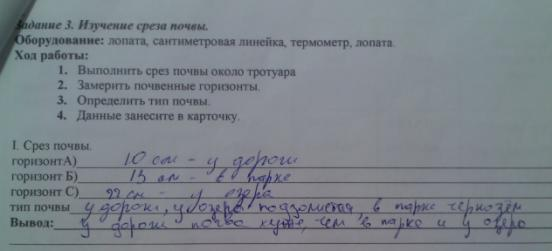 Задание 3. Изучение среза почвы.
Оборудование: лопата, сантиметровая линейка, термометр, лопата.
Ход работы:
1. Выполнить срез почвы около тротуара
2. Замерить почвенные горизонты.
3. Определить тип почвы.
4. Данные занесите в карточку.
I. Срез почвы.
горизонтА) 10 см - у дороги
горизонт Б) 13 см - в парке
горизонт С) 22 см - у озера
тип почвы у дороги, у озера подзолистая, в парке чернозём
Вывод: у дороги почва хуже, чем в парке и у озера